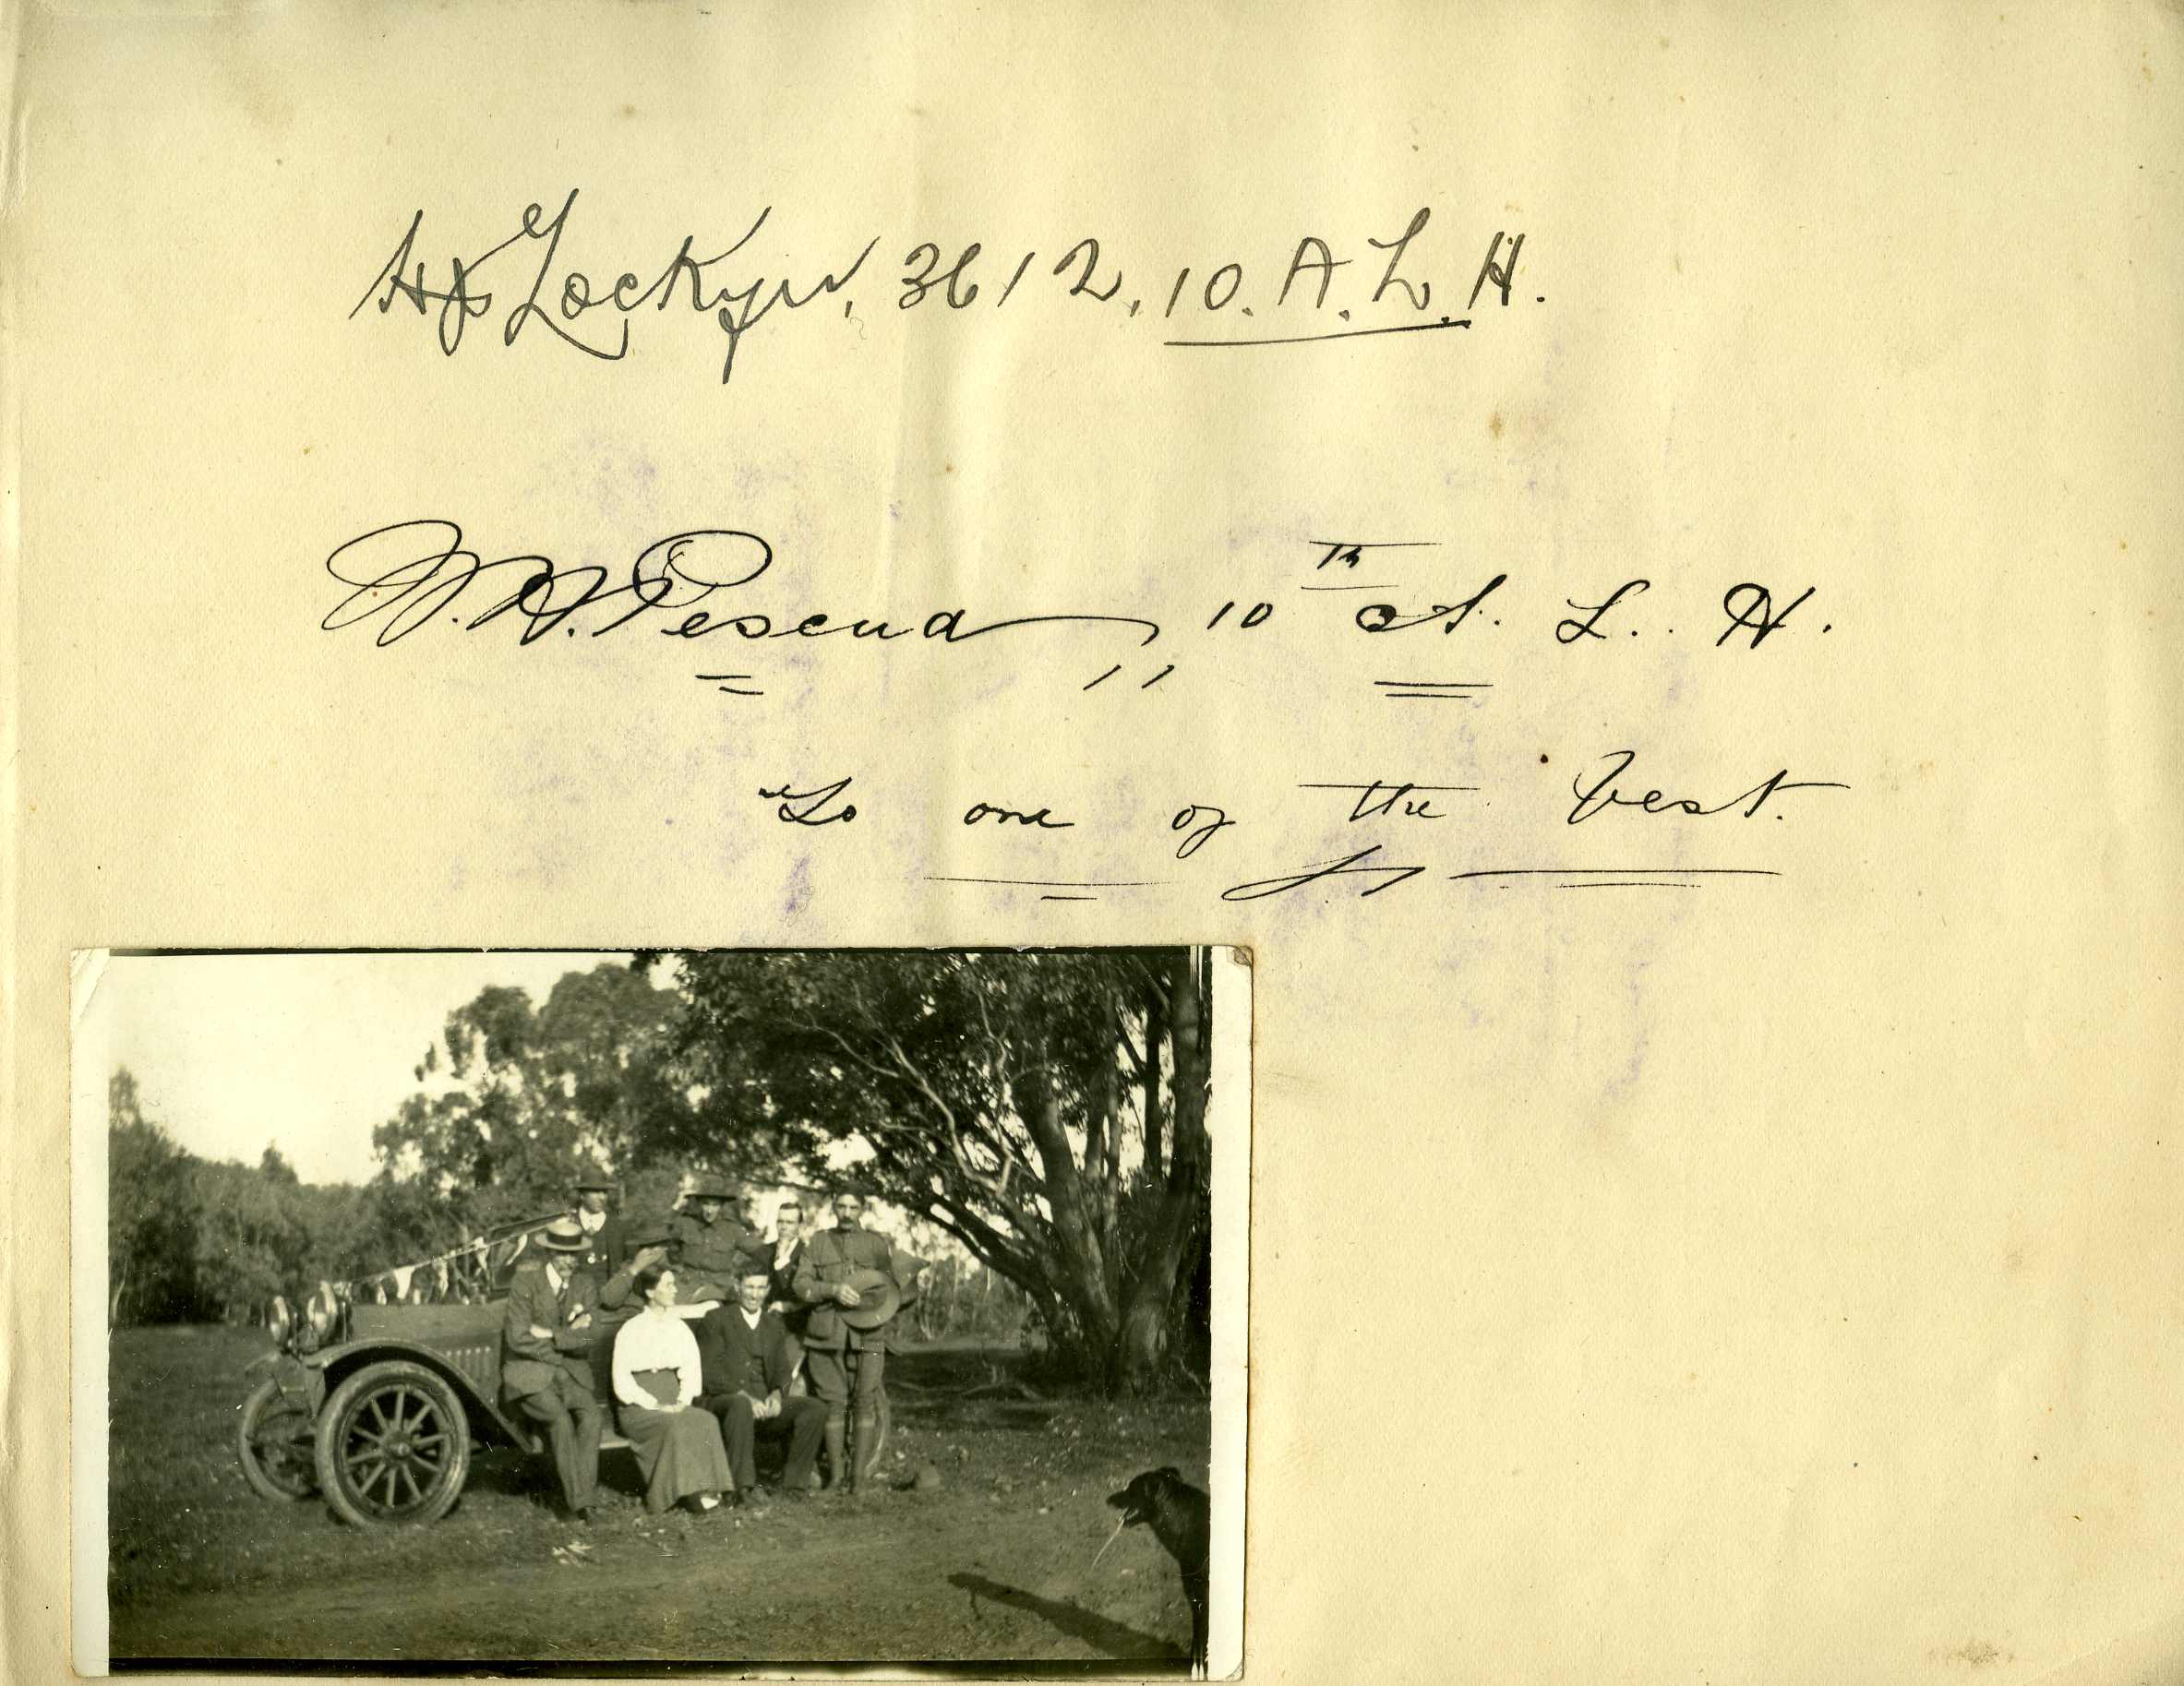 HJ Lockyer, 3612, 10. A. L. H.
W. H. Pescud, 10th A. L. H.
"To one of the best.